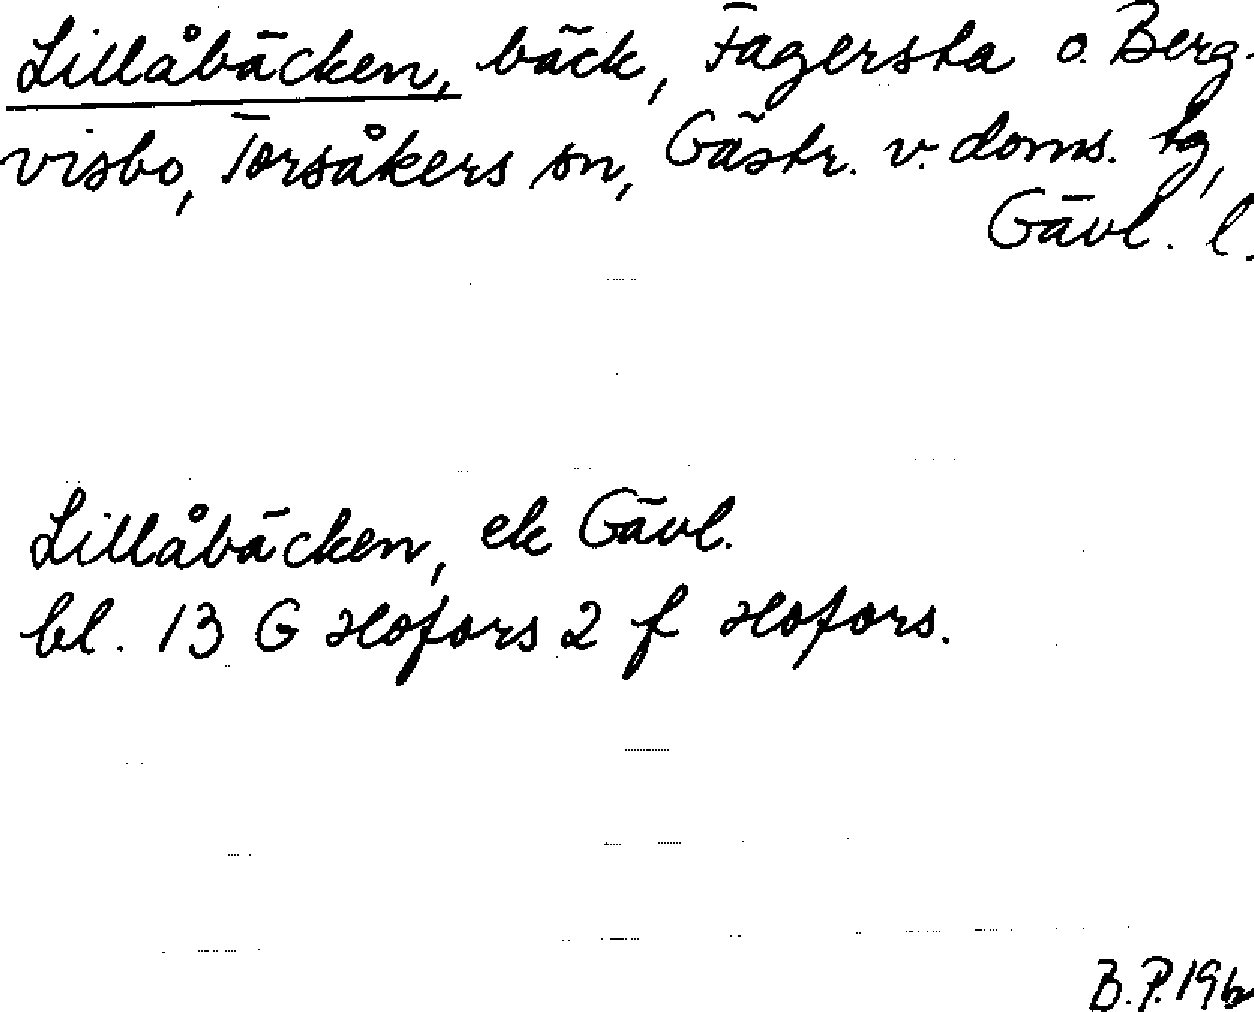 Lillåbäcken, bäck, Fagersta o. Berg-
visbo, Torsåkers sn, Gästr. v. doms. tg,
Gävl. l.
Lillåbäcken, ek Gävl.
bl. 13 G Hofors 2 f Hofors.
B.P. 196